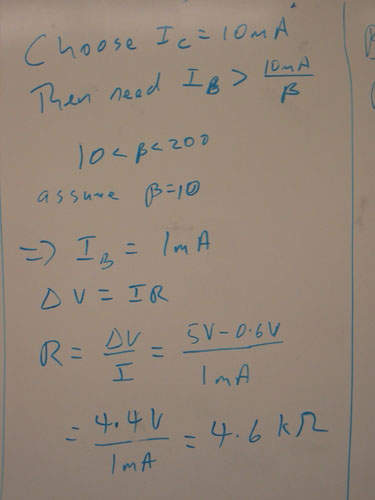 Choose IC = 10mA
Then need IB > 10mA/β
10 < β < 200
assume β=10
=> IB = 1mA
ΔV = IR
R = ΔV/I = 5V-0.6V/1mA
= 4.4V/1mA = 4.6 kΩ